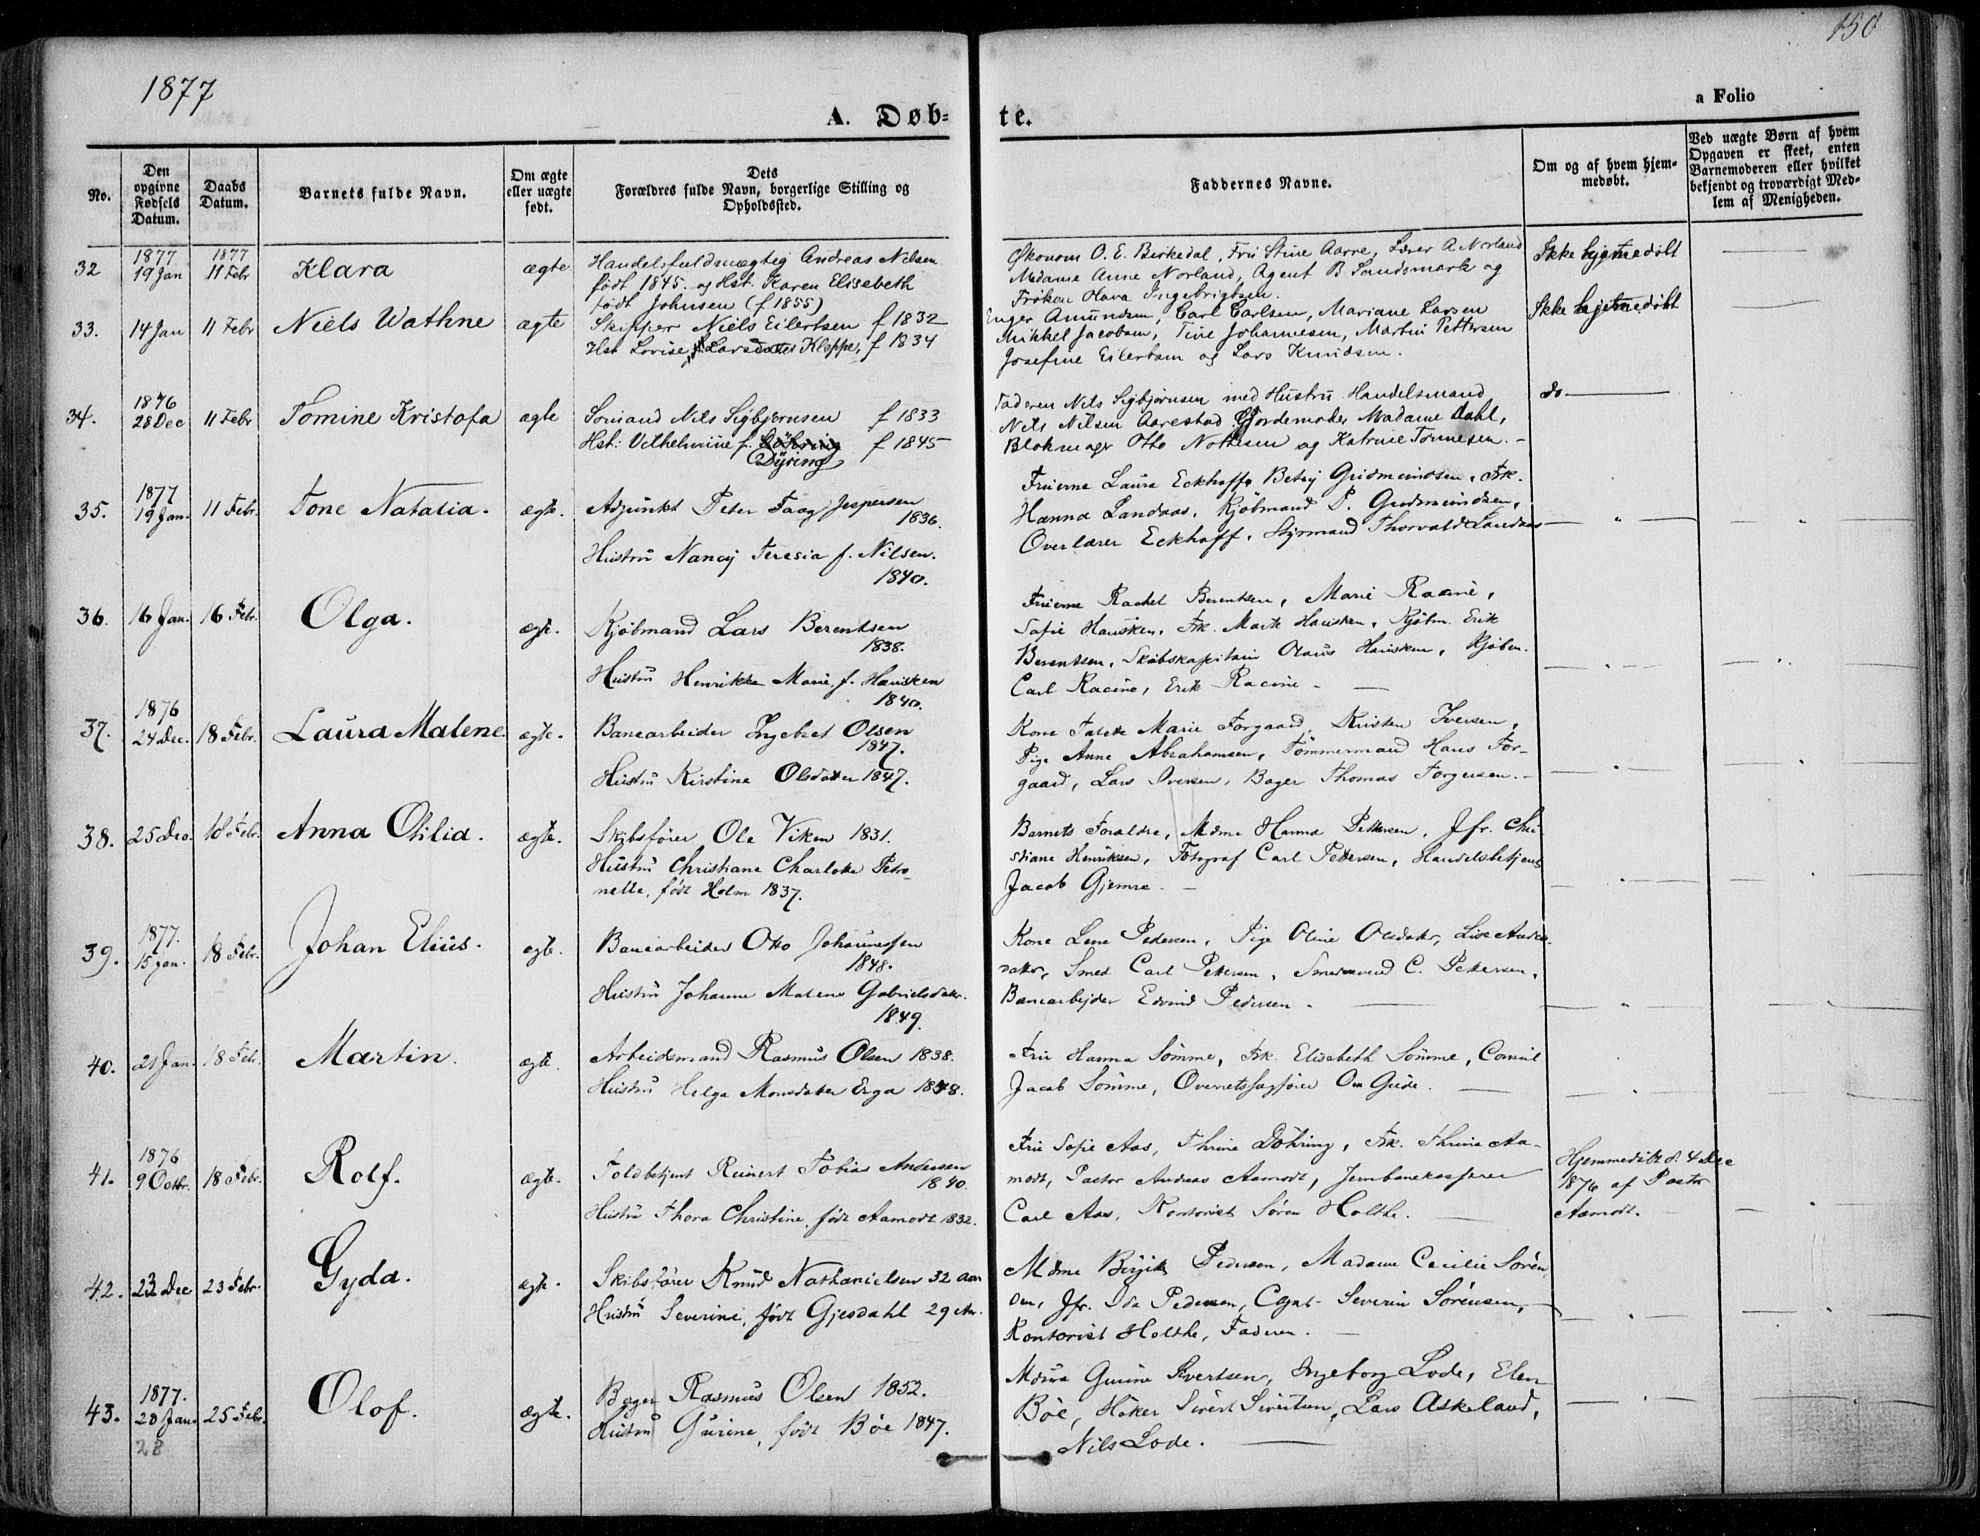 150
1877
a Folio
A. Døb-
te.
No.
Den opgivne Fødsels Datum.
Daabs Datum.
Barnets fulde Navn.
Om ægte eller uægte født.
Dets Forældres fulde Navn, borgerlige Stilling og Opholdssted.
Faddernes Navne.
Om og af hvem hjemmedøbt.
Ved uægte Børn af hvem Opgaven er skeet, enten Barnemoderen eller hvilket bekjendt og troværdigt Medlem af Menigheden.
32 1877 19 Jan 1877 11 Febr Klara ægte
Handelsfuldmægtig Andreas Nilsen
født 1845. og Hst. Karen Elisabeth
født Johnsen (f 1855)
Økonom O. E. Birkedal, Fru Stine Aarre, Lærer A Norland
Madame Anne Norland, Agent B Sandsmark og
Frøken Olava Ingebrigtsen.
Ikke hjemmedøbt
33. 14 Jan 11 Febr Niels Wathne ægte
Skipper Niels Eilertsen f 1832
Hst Lovise Larsdatter Kleppe, f 1834
Amundsen, Carl Carlsen, Mariane Larsen
Mikkel Jacobsen, Tine Johannesen, Martin Pettersen
Josefine Eilertsen og Lars Knudsen.
Ikke hjemmedøbt
34. 1876 28 Dec 11 Febr Tomine Kristofa ægte
Sømand Nils Sigbjørnsen f 1833
Hst: Vilhelmine f. Dyring f 1845
Faderen Nils Sigbjørnsen med Hustru Handelsmand
Nils Nilsen Aarestad Gjordemoder Madame Dahl,
Blokmager Otto Nottesen og Katrine Tonnesen.
do
35. 1877 19 Jan. 11 Febr. Tone Natalia. ægte.
Adjunkt Peter Faag Jespersen
1836.
Hustru Nancy Teresia f. Nilsen.
1840.
Fruerne Laura Eckhoff, Betsy Gudmundsen, Frk.
Hanna Landaas, Kjøbmand P. Gudmundsen,
Overlærer Eckhoff, Styrmand Thorvald Landaas
36. 16 Jan. 16 Febr. Olga. ægte.
Kjøbmand Lars Berentsen
1838.
Hustru Henrikke Marie f. Hausken
1840.
Fruerne Rachel Berentsen, Marie Racine,
Sofie Hausken, Frk. Marte Hausken, Kjøbm. Erik
Berentsen, Skibskapitain Olaus Hausken, Kjøbm.
Carl Racine, Erik Racine
37. 1876 24 Dec. 18 Febr. Laura Malene ægte.
Banearbeider Ingebret Olsen
1847.
Hustru Kirstine Olsdatter 1847.
Kone Marie Torgaard, Kristen Iversen,
Pige Anne Abrahamsen, Tømmermand Hans Tor-
gaard, Lars Iversen, Bager Thomas Torgersen.
38. 25 Dec. 18 Febr. Anna Otilia. ægte.
Skibsfører Ole Viken 1831.
Hustru Christiane Charlotte Petro-
nelle, født Holm 1837.
Barnets Forældre, Mdme Hanna Pettersen, Jfr. Chri
stiane Henriksen, Fotograf Carl Pettersen, Handelsbetjent
Jacob Gjemre.
39. 1877. 15 Jan. 18 Febr. Johan Elius. ægte.
Banearbeider Otto Johannessen
1848.
Hustru Johanne Malene Gabrielsdatter.
1849.
Kone Lene Pedersen, Pige Oline Olsdatter, Lise Anders
datter, Smed Carl Pettersen, C. Pettersen,
Banearbejder Edvind Pedersen.
40. 21 Jan. 18 Febr. Martin. ægte.
Arbeidsmand Rasmus Olsen 1838.
Hustru Helga Monsdatter Erga 1848.
Fru Hanna Sømme, Frk. Elisabeth Sømme, Consul
Jacob Sømme, Overretssagfører Om Gude.
41. 1876 9 Octbr. 18 Febr. Rolf. ægte.
Toldbetjent Reinert Tobias Andersen
1840.
Hustru Thora Christine, født Aamodt 1832.
Fru Sofie Aas, Thrine Døhring, Frk. Thrine Aa-
modt, Pastor Andreas Aamodt, Jernbanekasserer
Carl Aas, Kontorist Søren Holthe.
Hjemmedøbt d. 4 Dec
1876 af Pastor
Aamodt.
42. 23 Dec 23 Febr. Gyda. ægte.
Skibsfører Knud Nathanielsen 32 Aar
Hustru Severine, født Gjesdahl 29 Aar.
Mdme Birgitte Pedersen, Madame Cecilie Søren
sen, Jfr. Ida Pedersen, Capt. Severin Sørensen,
Kontorist Holthe, Faderen.
43. 1877. 28 Jan. 25 Febr. Olof. ægte.
28
Bager Rasmus Olsen 1852.
Hustru Gurine, født Bøe 1847.
Gurine Sivertsen, Ingeborg Lode, Elen
Bøe, Høker Sivert Sivertsen, Lars Askeland,
Nils Lode.